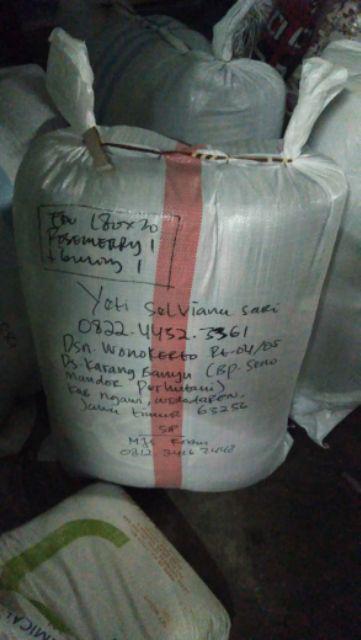 180x20
Rosemerry 1
+ Guling 1
Yeti Selviana sari
0822.4452.3361
Dsn. Wonokerto Rt.04/05
Ds. Karang Banyu (BP. Seno
mandor Perhutani)
Kab ngawi, widodaren,
Jawa timur 63256
SIP
0812
MICAL